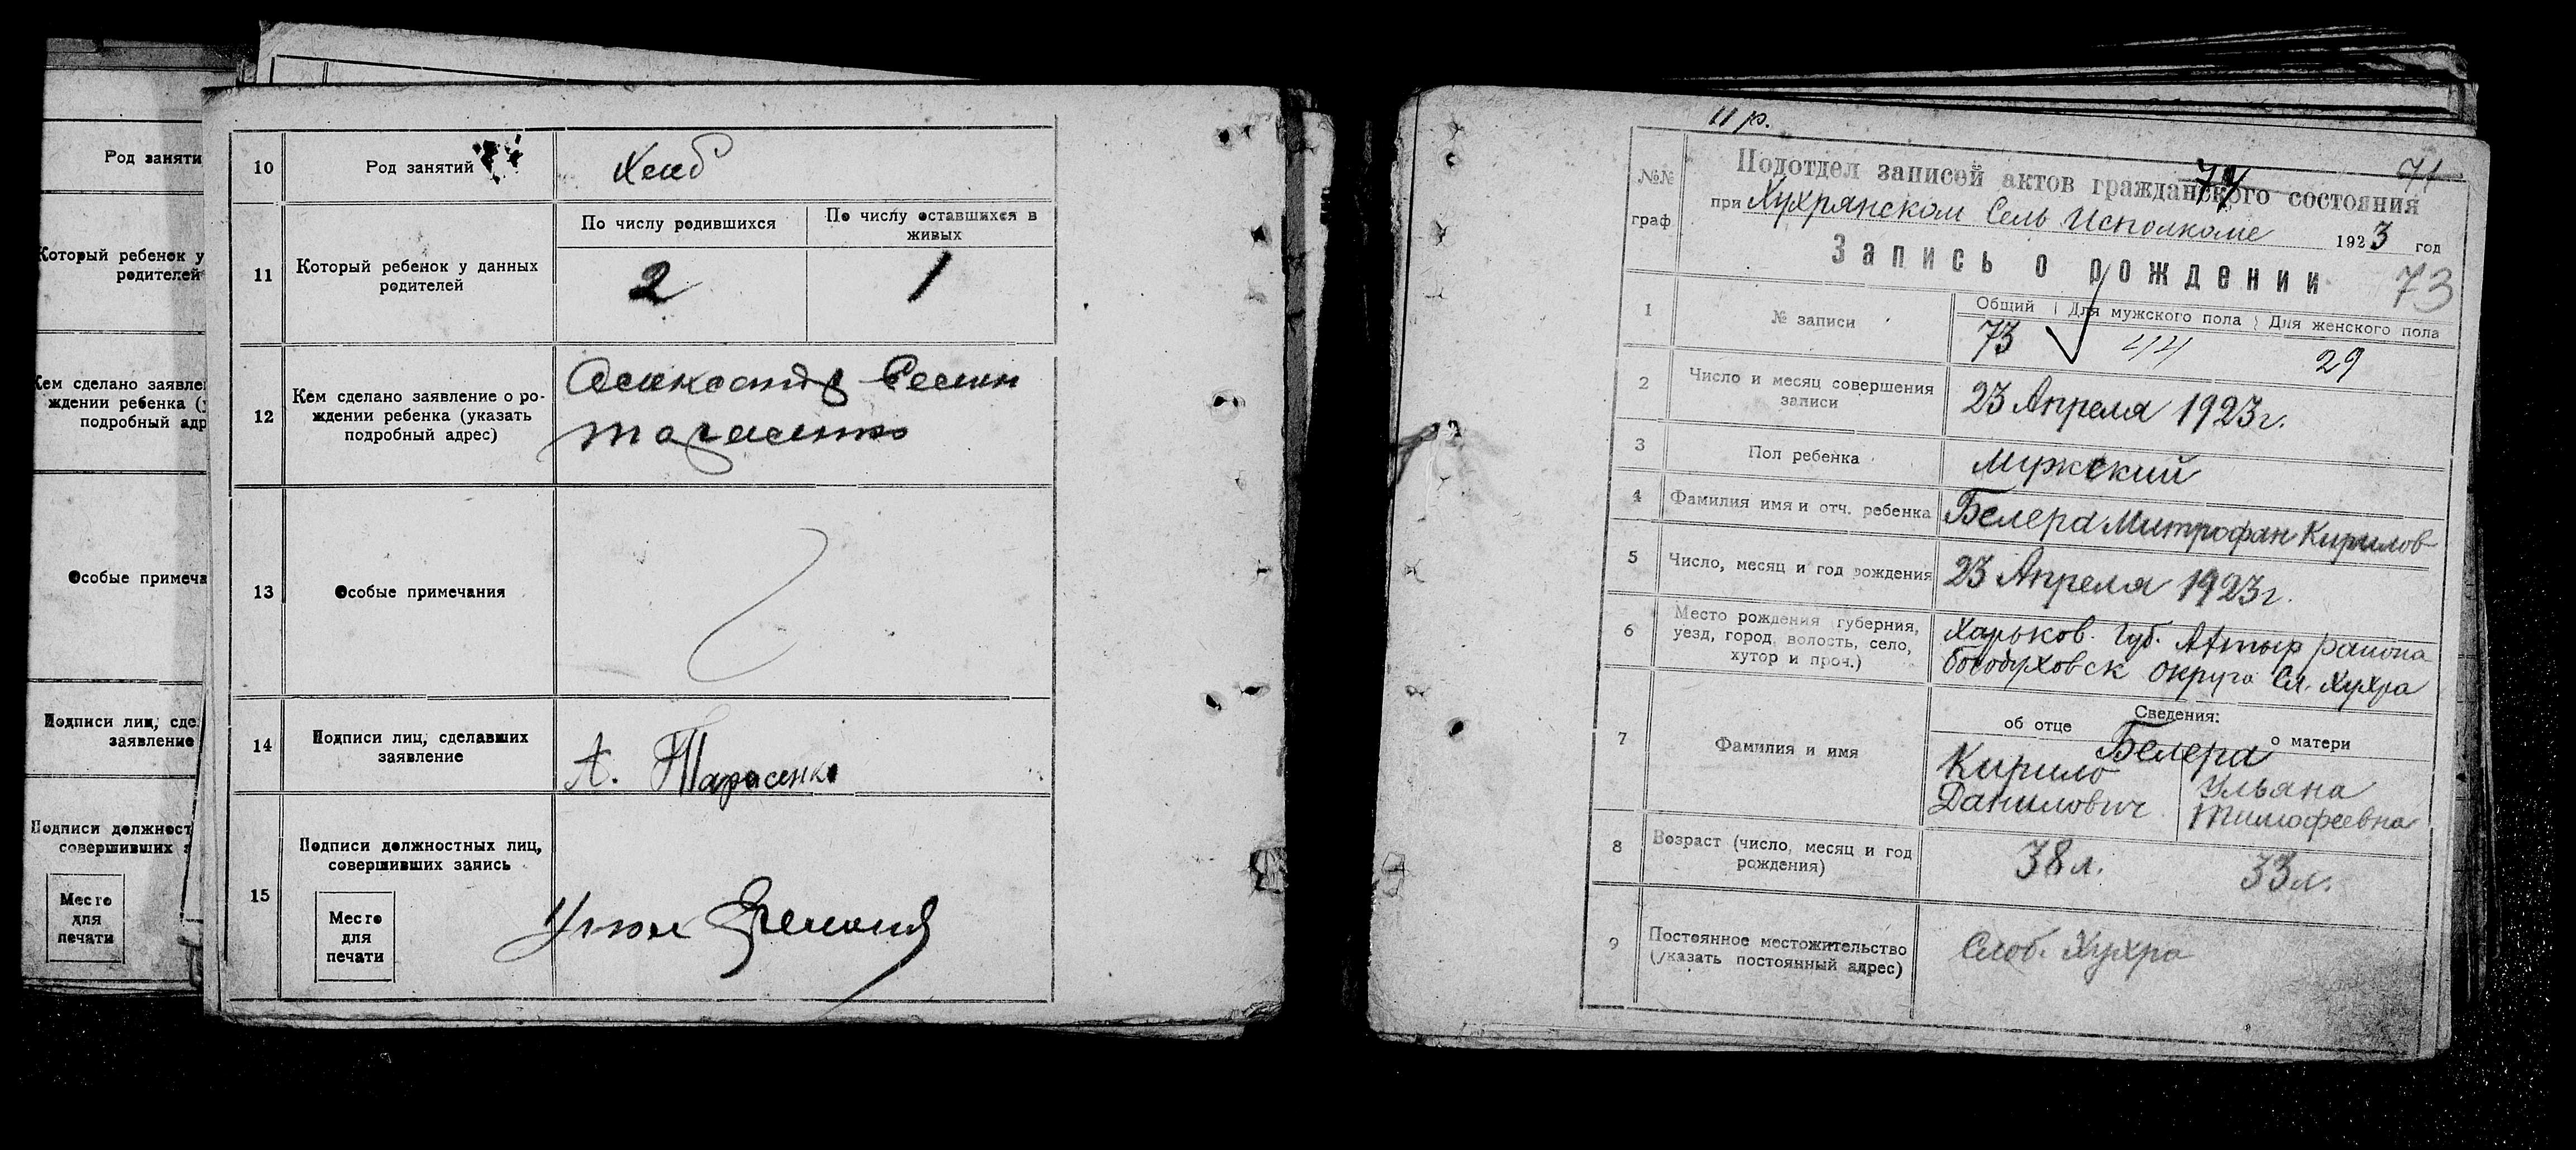 Род заняти
Который ребенок у
родителей
Кем сделано заявле
ждении ребенка (у
подробный адр
Особые примеча
Подписи лиц, сде
заявление
Подписи должност
совершивших з
Место
для
печати
10 Род занятий Хлеб
11 Который ребенок у данных
родителей
По числу родившихся
По числу оставшихся в
живых
2 1
12 Кем сделано заявление о ро-
ждении ребенка (указать
подробный адрес)
Александр
Тарасенко
13 Особые примечания
14 Подписи лиц, сделавших
заявление
А. Тарасенко
15 Подписи должностных лиц,
совершивших запись
Место
для
печати
11 р.
№№
граф
71
74
Подотдел записей актов гражданского состояния
при Хухрянском Сель Исполкоме 1923 год
Запись о рождении 73
1 № записи
Общий Для мужского пола Для женского пола
73 44 29
2 Число и месяц совершения
записи
23 Апреля 1923г.
3 Пол ребенка Мужский
4 Фамилия имя и отч. ребенка Белера Митрофан Кирилов
5 Число, месяц и год рождения 23 Апреля 1923г.
6 Место рождения губерния,
уезд, город, волость, село,
хутор и проч.)
Харьков. Губ. Ахтыр района
богодуховск округа Сл. Хухра
7 Фамилия и имя
Сведения:
об отце о матери
Белера
Кирило
Данилович
Ульяна
Тимофеевна
8 Возраст (число, месяц и год
рождения)
38 л. 33 л.
9 Постоянное местожительство
(указать постоянный адрес)
Слоб. Хухра